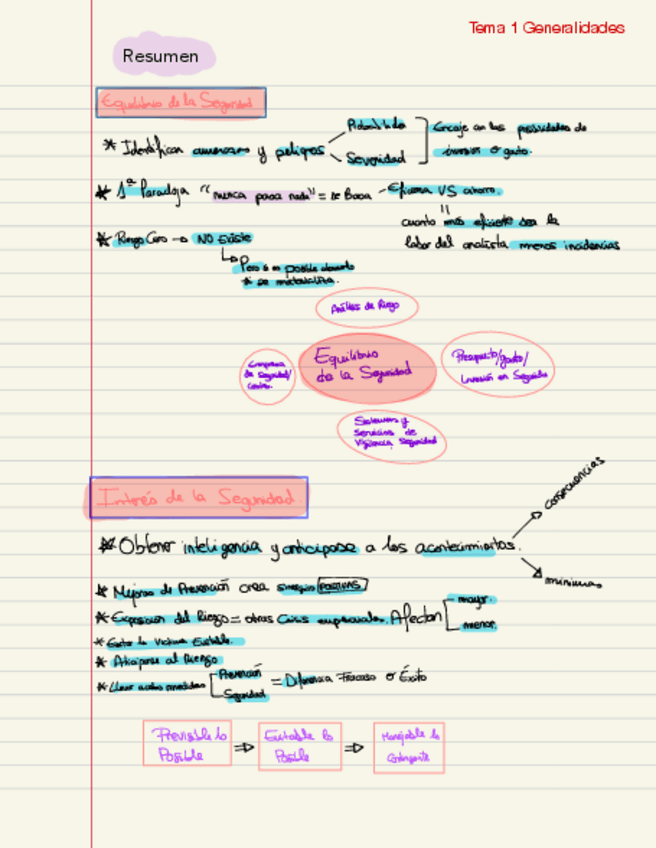 Tema 1 Generalidades
Resumen
Equilibrio de la Seguridad
* Identifican amenazas y peligros
Probabilidad
Severidad
Encaje con las posibilidades de
inversión o gasto.
* 1ª Paradoja "nunca pasa nada" = se Basa - Eficacia VS ahorro.
"
cuanto más eficiente sea la
labor del analista menos incidencias
* Riesgo Cero → NO EXISTE
Pero si es posible
se materializa.
Análisis de Riesgo
Equilibrio
de la Seguridad
Empresa
de Seguridad/
Presupuesto/gasto/
Inversión en Seguridad
Sistemas y
Servicios de
Vigilancia Seguridad
Interés de la Seguridad.
* Obtener inteligencia y anticiparse a los acontecimientos.
consecuencias
mínimas
* Mejoras de Prevención crea sinergias POSITIVAS
* Exposición del Riesgo = otras Crisis empresariales. Afectan
mayor.
menor.
* Evitar la Victima Evitable.
* Anticiparse al Riesgo
* Llevar acabo medidas
Prevención
Seguridad
= Diferencia Fracaso o Éxito
Previsible lo
Posible
⇒
Evitable lo
Posible
⇒
Manejable lo